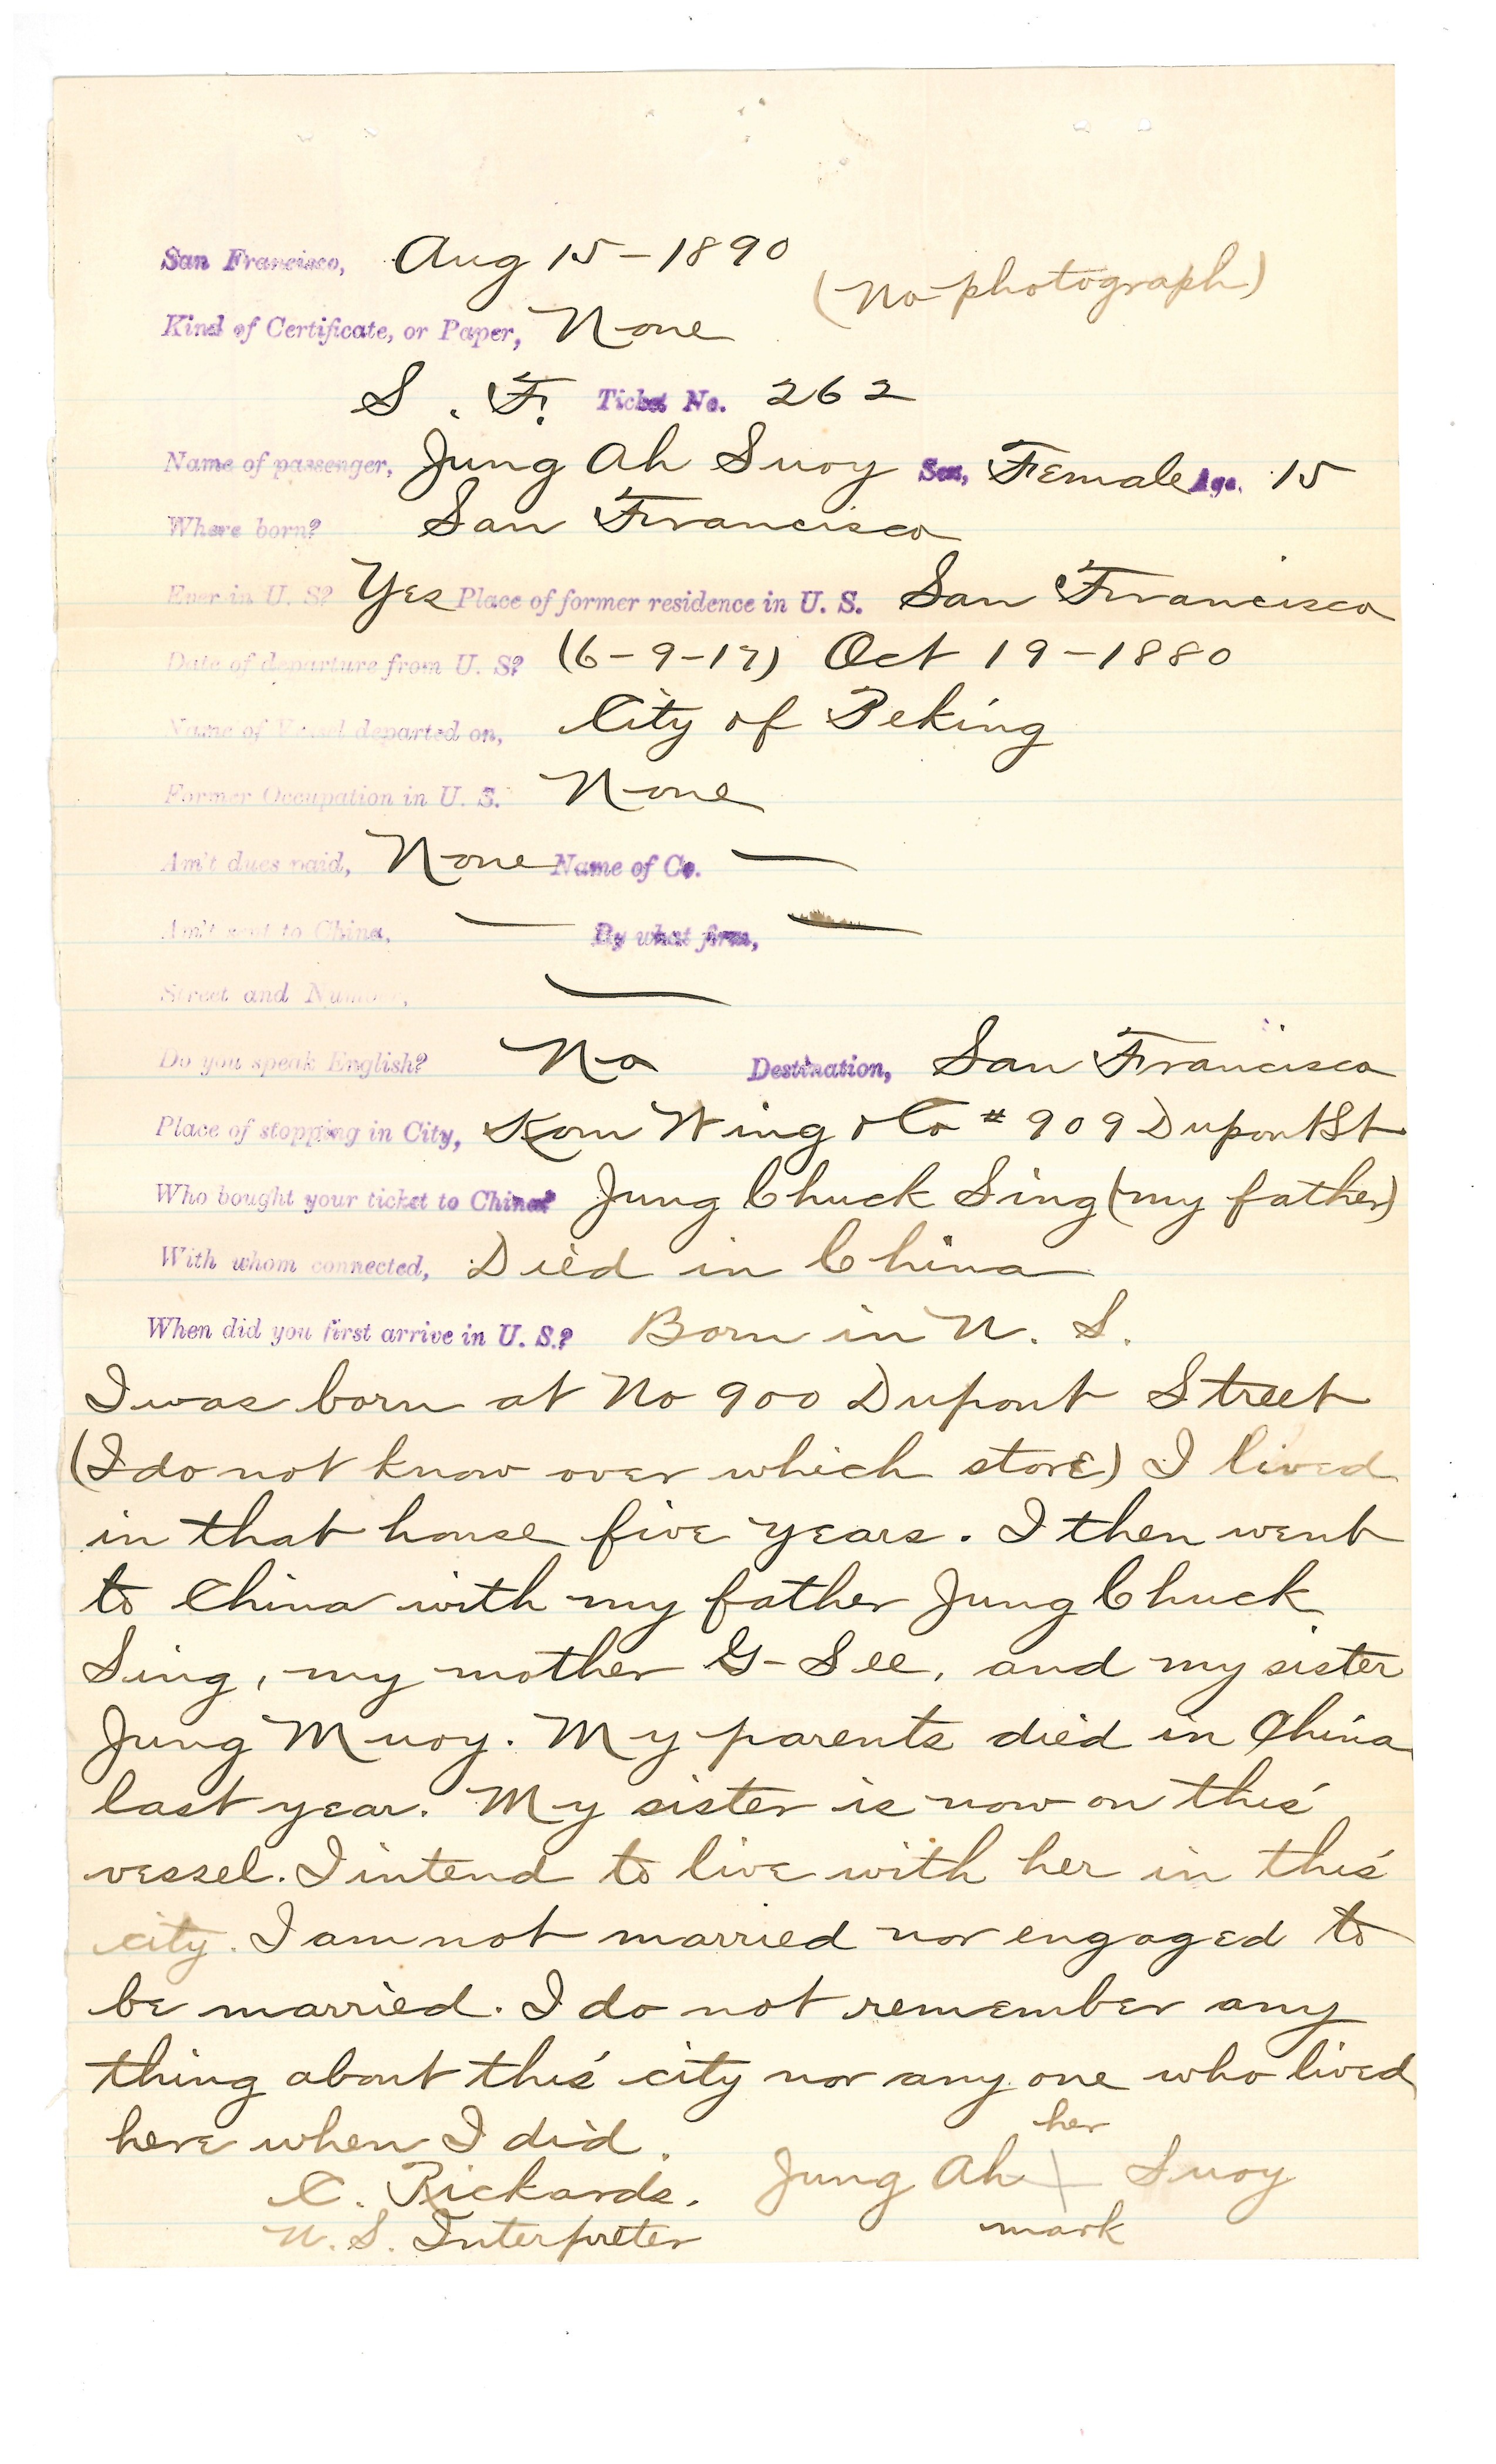 San Francisco, Aug 15-1890
(No photograph)
Kind of Certificate, or Paper, None
S. F. Ticket No. 262
Name of passenger, Jung Ah Suoy Sex, Female Age. 15
Where born? San Francisco
Ever in U. S? Yes Place of former residence in U. S. San Francisco
Date of departure from U. S? (6-9-17) Oct 19-1880
Name of Vessel departed on, City of Peking
Former Occupation in U. S. None
Am't dues paid, None Name of Co. —
Am't sent to China, — By what firm, —
Street and Number, —
Do you speak English? No Destination, San Francisco
Place of stopping in City, Kom Wing & Co # 909 Dupont St
Who bought your ticket to China? Jung Chuck Sing (my father)
With whom connected, Died in China
When did you first arrive in U. S.? Born in U. S.
I was born at No 900 Dupont Street
(I do not know over which store) I lived
in that house five years. I then went
to China with my father Jung Chuck
Sing, my mother G- See, and my sister
Jung Muoy. My parents died in China
last year. My sister is now on this
vessel. I intend to live with her in this
city. I am not married nor engaged to
be married. I do not remember any
thing about this city nor any one who lived
here when I did.
her
C. Rickards. Jung Ah + Suoy
U. S. Interpreter mark